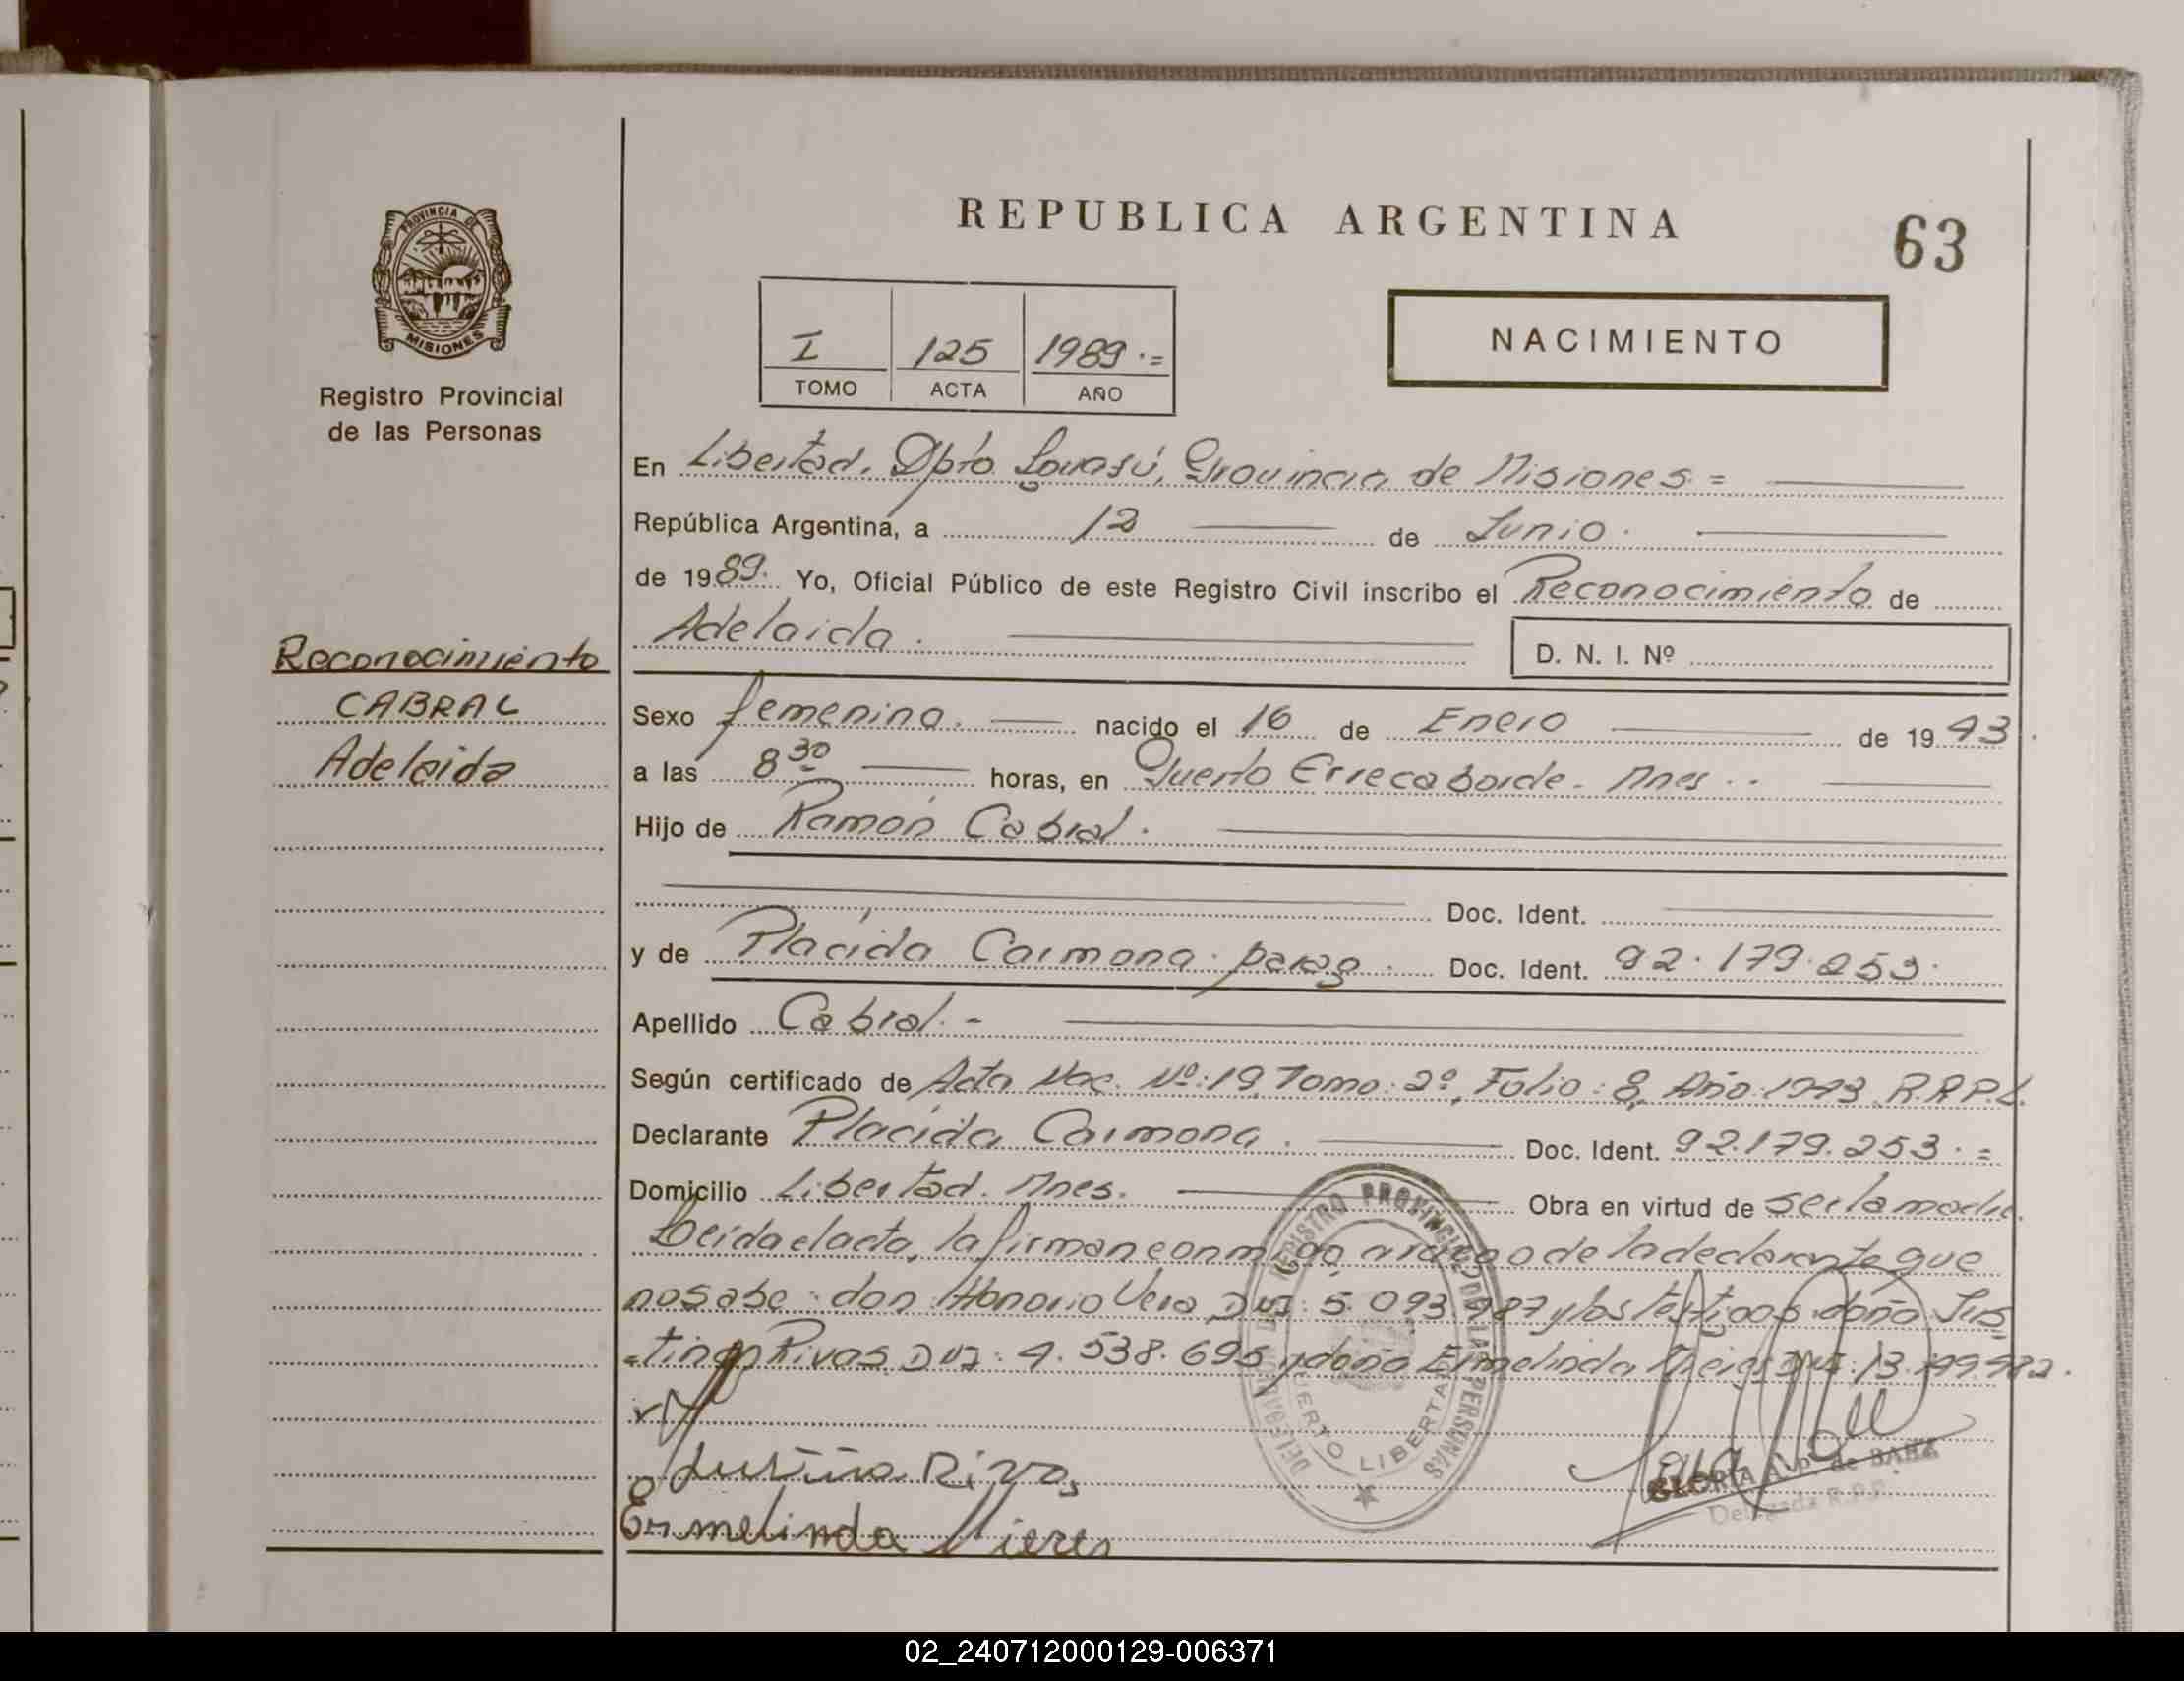 REPUBLICA ARGENTINA
63
PROVINCIA DE
MISIONES
Registro Provincial
de las Personas
I 125 1989.=
TOMO ACTA AÑO
NACIMIENTO
En Libertad. Dpto Iguasú, Provincia de Misiones =
República Argentina, a 12 de Junio.
de 1989. Yo, Oficial Público de este Registro Civil inscribo el Reconocimiento de
Adelaida. D. N. I. Nº
Reconocimiento
CABRAL
Adelaida
Sexo femenino. nacido el 16 de Enero de 1943.
a las 8 30 horas, en Puerto Errecaborde. Mnes..
Hijo de Ramón Cabral.
Doc. Ident.
y de Plácida Carmona. parag. Doc. Ident. 92.179.253.
Apellido Cabral.-
Según certificado de Acta Nac. Nº:19, Tomo: 2º, Folio: 8, Año:1943 R.P.P.L.
Declarante Plácida Carmona. Doc. Ident. 92.179.253.=
Domicilio Libertad. Mnes. Obra en virtud de ser la madre.
Leída el acta, la firman conmigo a ruego de la declarante que
no sabe: don Honorio Vera DNI: 5.093.987 y los testigos doña Jus
=tina Rivas DNI: 4.538.695 y doña Ermelinda DNI: 13.
Justina Rivas
Ermelinda Mieres
DELEGACION DEL REGISTRO PROVINCIAL DE LAS PERSONAS
PUERTO LIBERTAD
GLORIA A. P. de BAEZ
Delegada R.P.P.
02_240712000129-006371